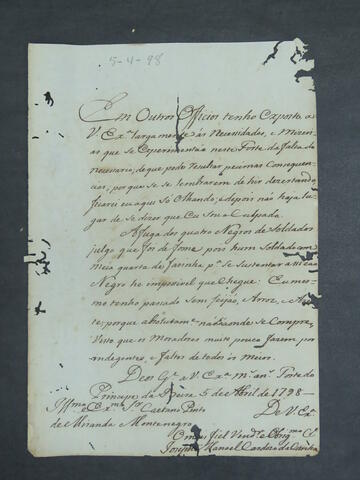 5-4-98
Em Outros Officios tenho Exposto a
V. Exa. largamente as Necessidades, e Mizeri
as que se Experimentão neste Forte da falta do
necessario; de que pode rezultar pecimas Consequen
cias; porque se se lembrarem de hir dezertando
ficarei eu aqui Só Olhando, e depois não haja lu
gar de se dizer que Eu Sou o Culpado.
A fuga dos quatro Negros de Soldados
julgo que foi de fome pois hum Soldado com
meia quarta de farinha pa. se Sustentar a Si e ao
Negro he impocivel que Chegue: Eu mes
mo tenho passado Sem feijão, Arroz, e
porque absolutamte. não há onde se Compre,
Visto que os Moradores muito pouco fazem por
indegentes, e faltos de todos os meios.
Deos Ge. a V. Exa. ms. ans. Forte do
Principe da Beira 5 de Abril de 1798
Illmo. e Exmo. Sr. Caetano Pinto
de Miranda Montenegro
De V. Exa.
Fiel
Joseph Manoel Cardozo da Cunha